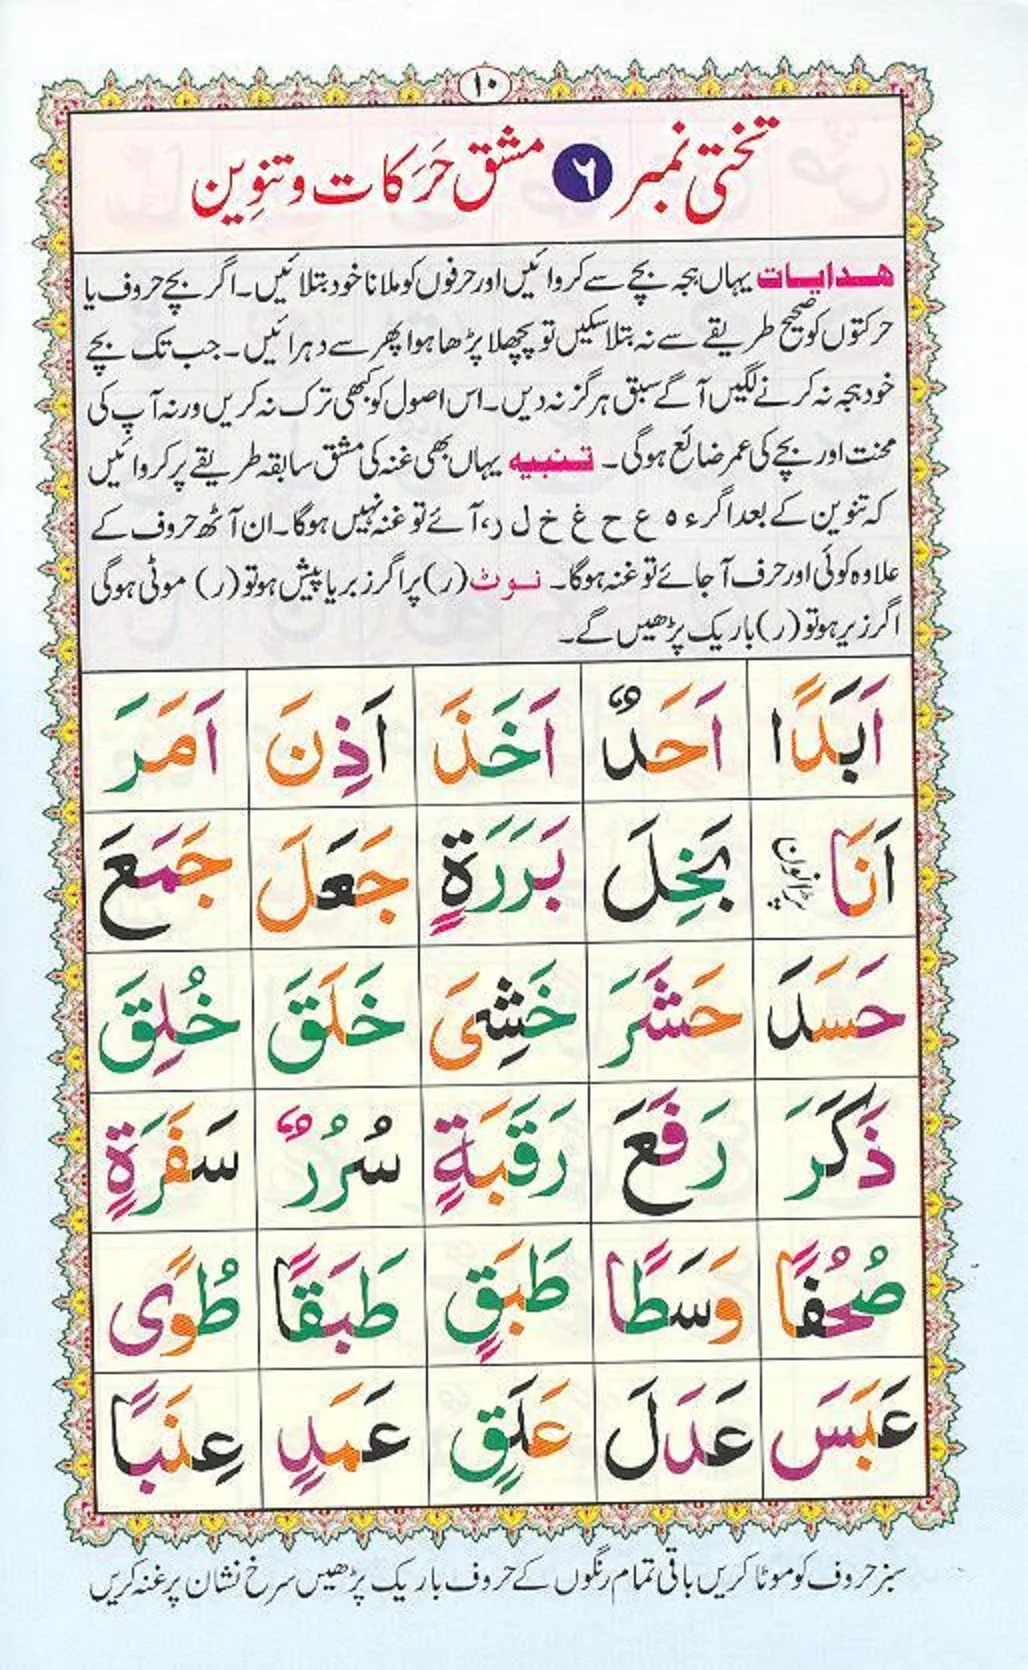 ۱۰
تختی نمبر ۶ مشق حَرَکات و تنوِین
ھدایات یہاں ہجہ بچے سے کروائیں اور حرفوں کو ملانا خود بتلائیں۔ اگر بچے حروف یا
حرکتوں کو صحیح طریقے سے نہ بتلا سکیں تو پچھلا پڑھا ہوا پھر سے دہرائیں۔ جب تک بچے
خود ہجہ نہ کرنے لگیں آگے سبق ہرگز نہ دیں۔ اس اصول کو کبھی ترک نہ کریں ورنہ آپ کی
محنت اور بچے کی عمر ضائع ہوگی۔ تنبیہ یہاں بھی غنہ کی مشق سابقہ طریقے پر کروائیں
کہ تنوین کے بعد اگر ء ہ ع ح غ خ ل ر، آئے تو غنہ نہیں ہوگا۔ ان آٹھ حروف کے
علاوہ کوئی اور حرف آ جائے تو غنہ ہوگا۔ نوٹ (ر) پر اگر زبر یا پیش ہو تو (ر) موٹی ہوگی
اگر زیر ہو تو (ر) باریک پڑھیں گے۔
اَبَدًا اَحَدٌ اَخَذَ اَذِنَ اَمَرَ
اَنَا پڑھو اَنَ بَخِلَ بَرَرَةٍ جَعَلَ جَمَعَ
حَسَدَ حَشَرَ خَشِیَ خَلَقَ خُلِقَ
ذَکَرَ رَفَعَ رَقَبَةٍ سُرُرٌ سَفَرَةٍ
صُحُفًا وَسَطًا طَبَقٍ طَبَقًا طُوًی
عَبَسَ عَدَلَ عَلَقٍ عَمَدٍ عِنَبًا
سبز حروف کو موٹا کریں باقی تمام رنگوں کے حروف باریک پڑھیں سرخ نشان پر غنہ کریں